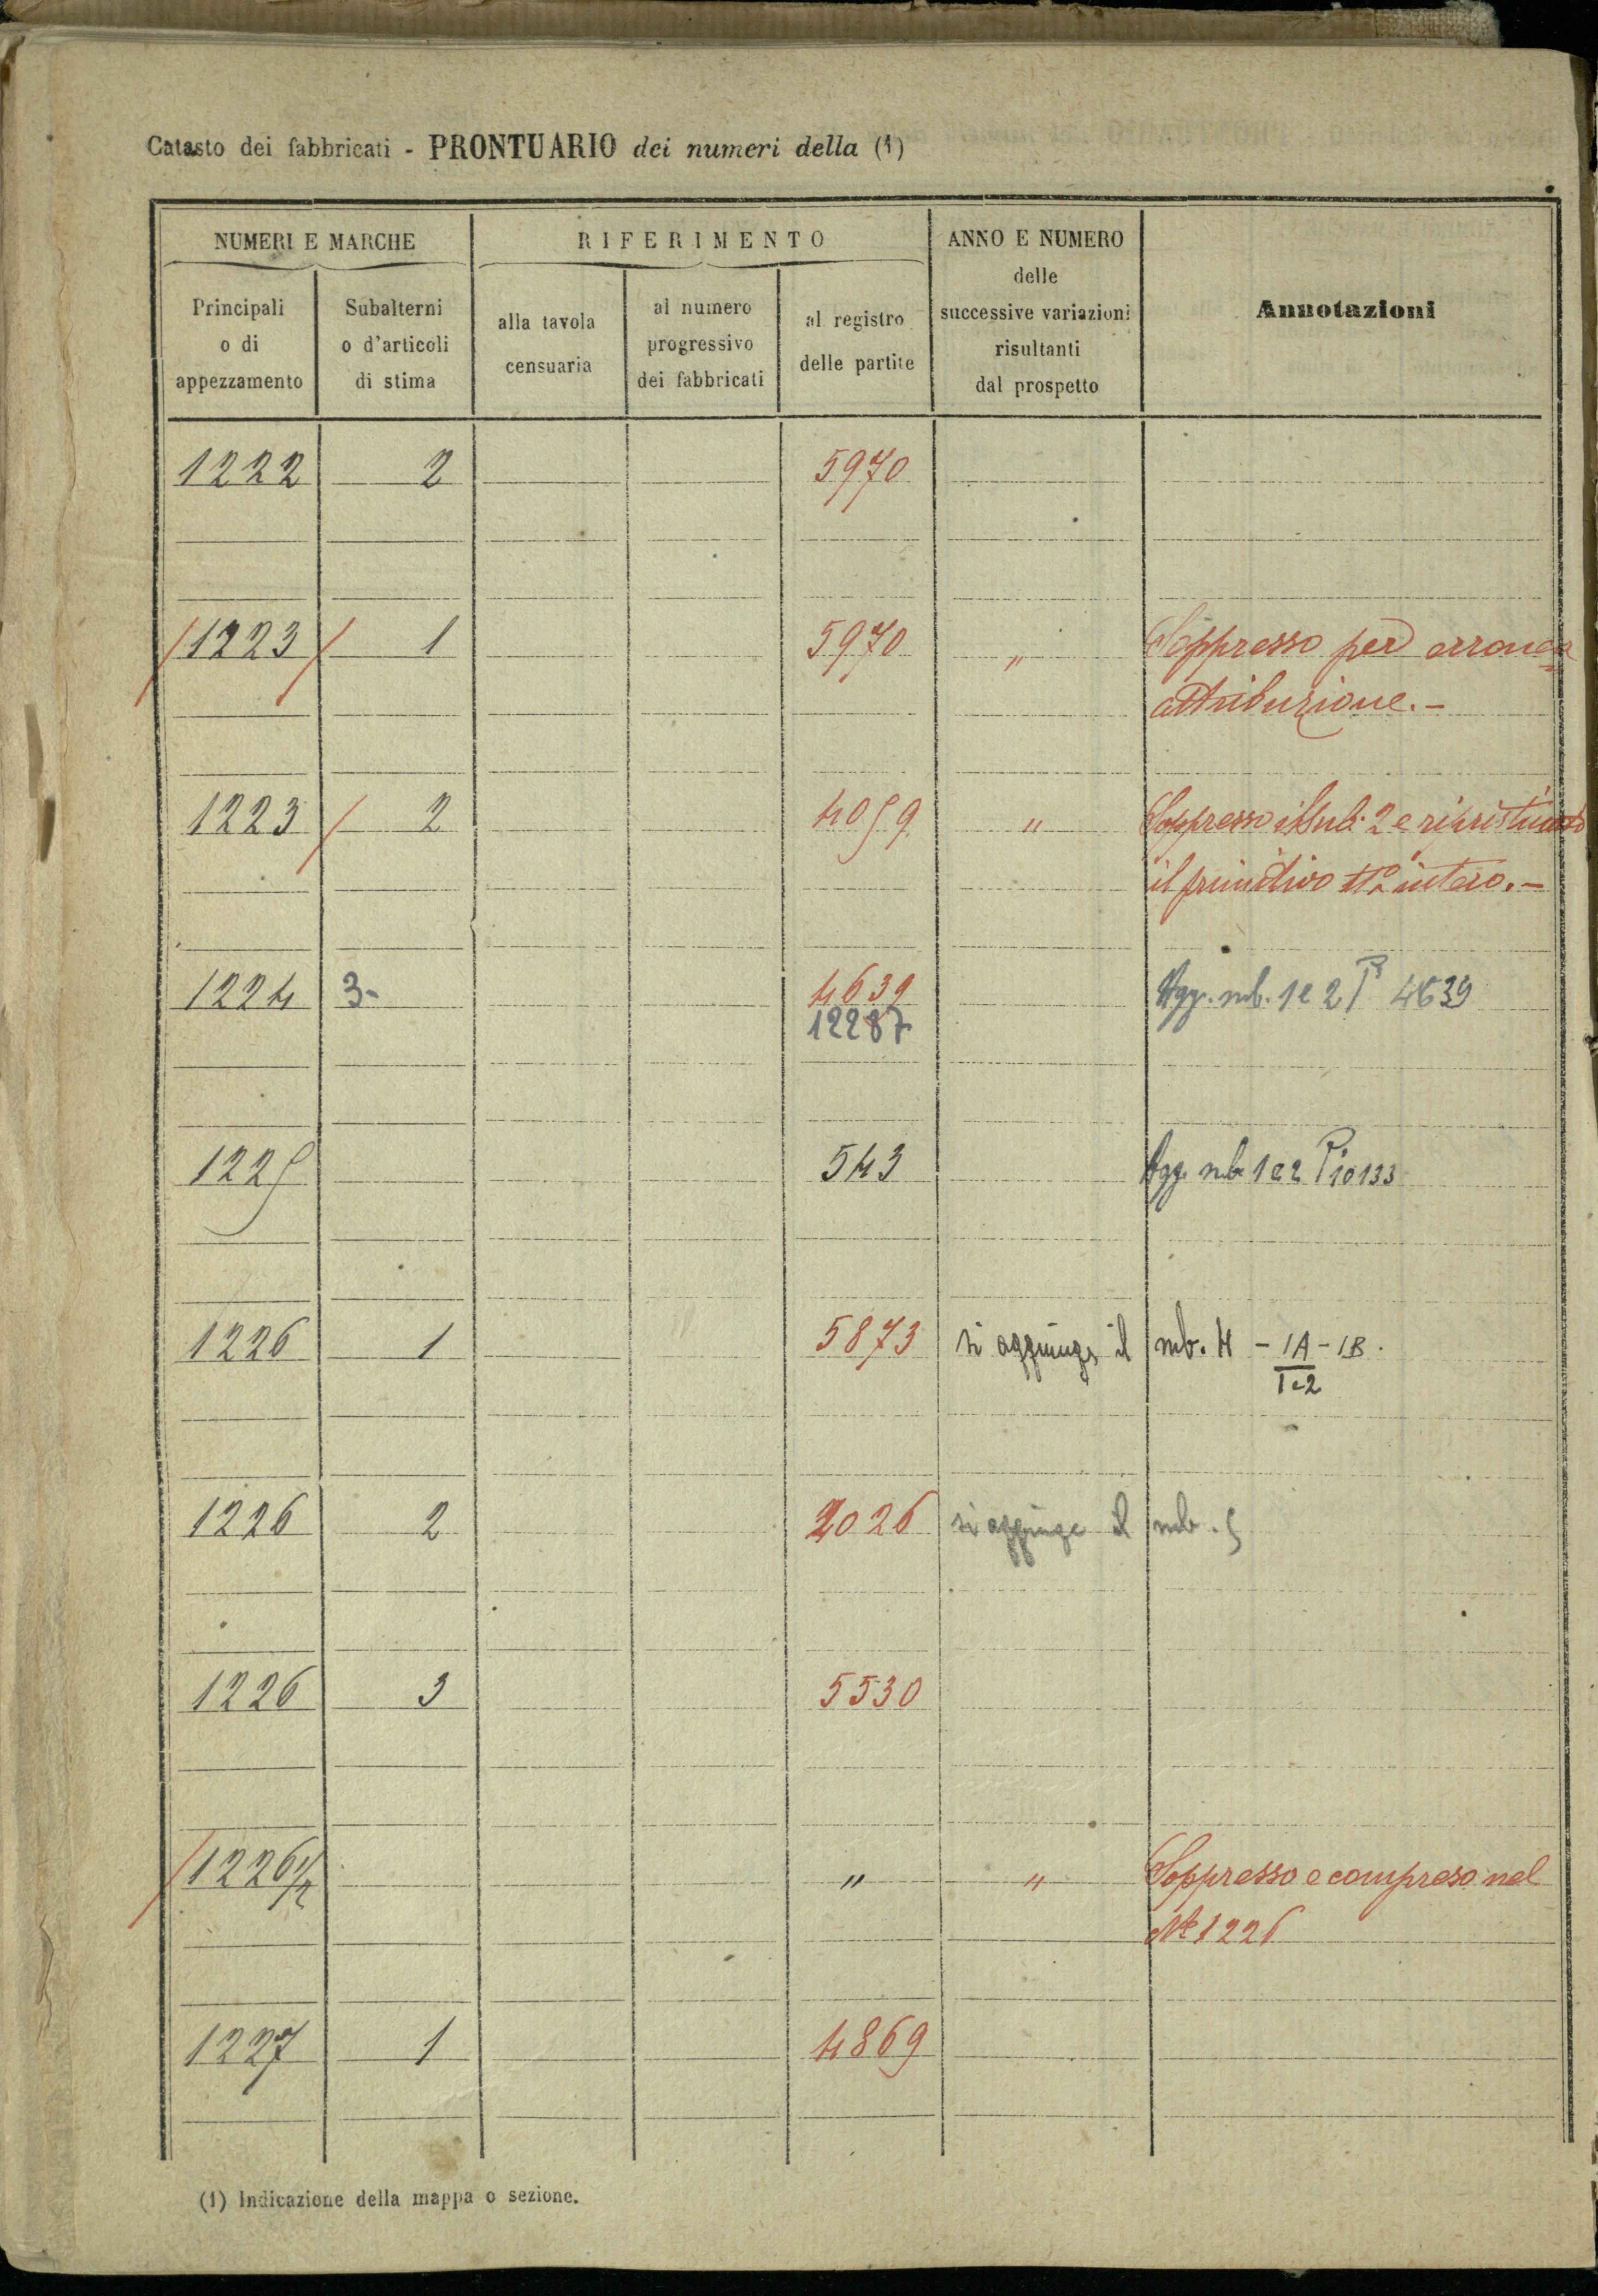 Catasto dei fabbricati - PRONTUARIO dei numeri della (1)
NUMERI E MARCHE
RIFERIMENTO
ANNO E NUMERO
delle
successive variazioni
risultanti
dal prospetto
Annotazioni
Principali
o di
appezzamento
Subalterni
o d'articoli
di stima
alla tavola
censuaria
al numero
progressivo
dei fabbricati
al registro
delle partite
1222 2 5970
/1223 / 1 5970 " Soppresso per erronea
attribuzione.-
1223 / 2 4059 " Soppresso il sub. 2 e ripristinato
il primitivo N° intero.-
1224 3- 4639 Agg. sub. 1 e 2 P 4639
12287
1225 543 Agg. sub 1 e 2 P 10133
1226 1 5873 si aggiunge il sub. 4 - 1A - 1B.
1 e 2
1226 2 2026 si aggiunge il sub. 5
1226 3 5530
/1226 1/2 " " Soppresso e compreso nel
N° 1226
1227 1 4869
(1) Indicazione della mappa o sezione.